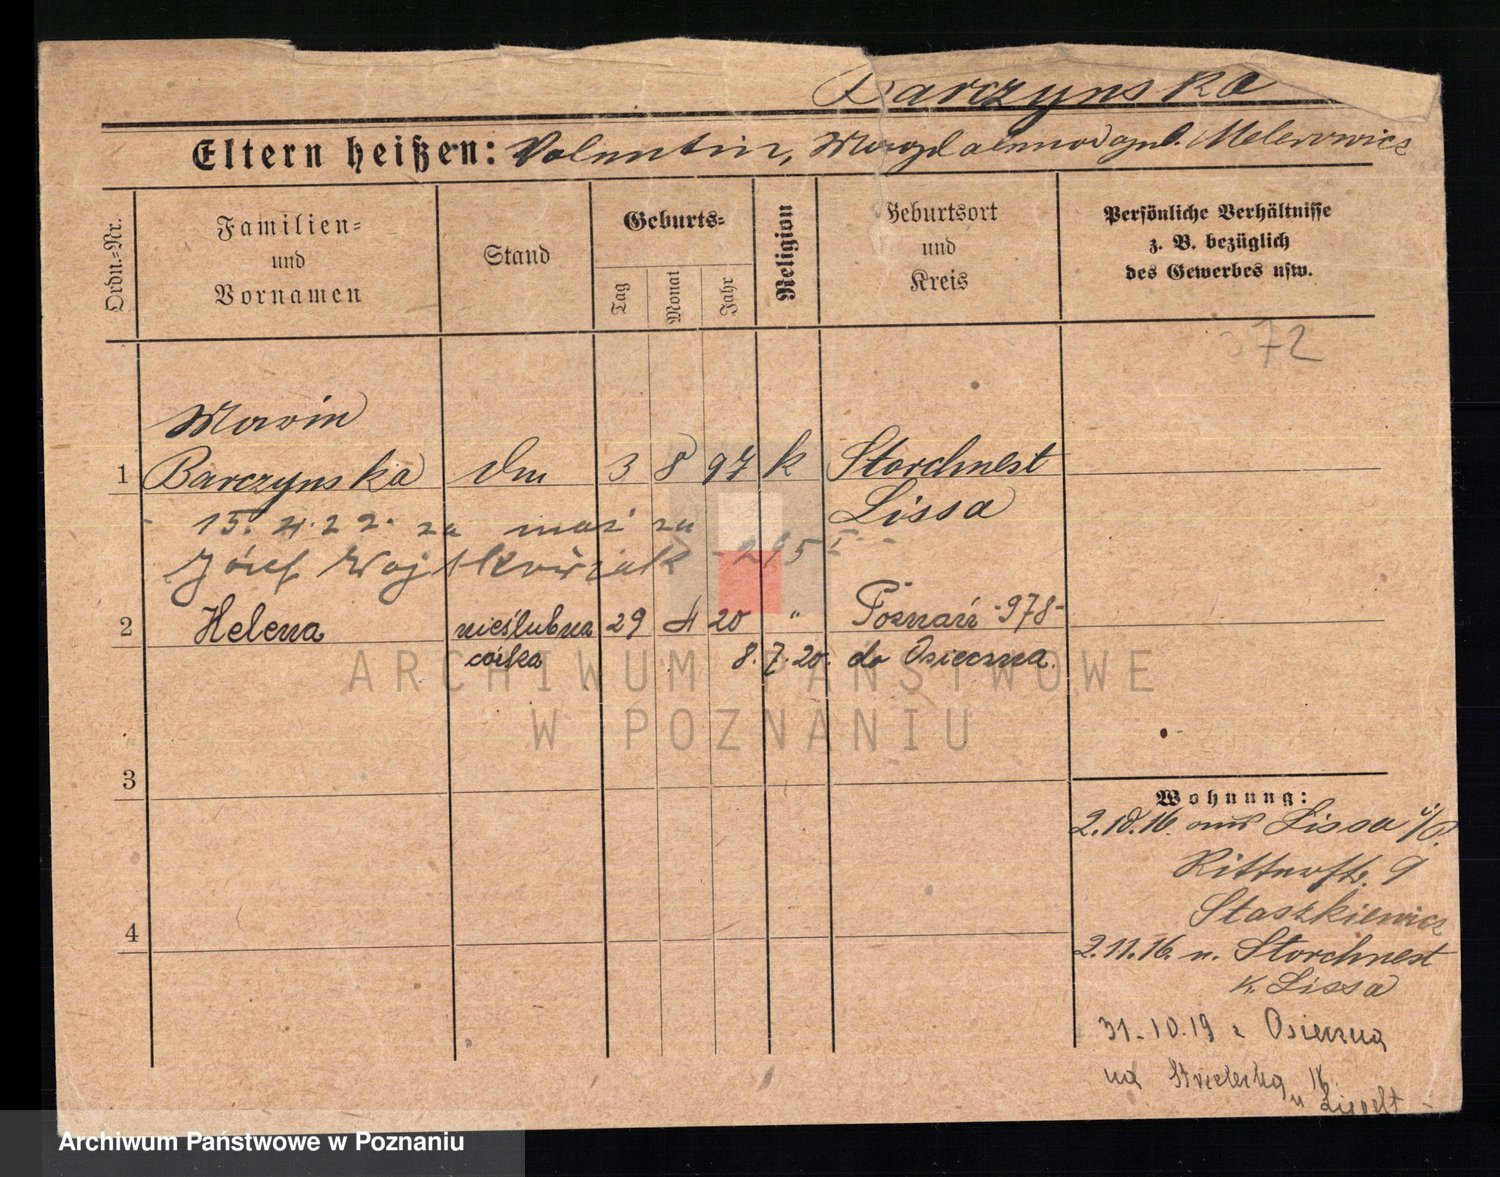 Barczynska
Eltern heißen: Valentin, Magdalena d agnl. Melerowicz
Ordn.-Nr.
Familien-
und
Vornamen
Stand
Geburts-
Tag
Monat
Jahr
Religion
Geburtsort
und
Kreis
Persönliche Verhältnisse
z. B. bezüglich
des Gewerbes usw.
372
Marin
1 Barczynska dm 3 8 97 k Storchnest
Lissa
15. 4. 22. za mąż za
Józef Wojtkowiak
2 Helena nieślubna 29 4 20 " Poznań -978-
córka 8.7.20. do Osieczna.
ARCHIWUM PAŃSTWOWE
W POZNANIU
3
Wohnung:
2.10.16. aus Lissa i/P.
Ritterstr. 9
Staszkiewicz
4
2.11.16. n. Storchnest
K. Lissa
31.10.19 z Osieczna
na Strzelecka 16
u
Archiwum Państwowe w Poznaniu